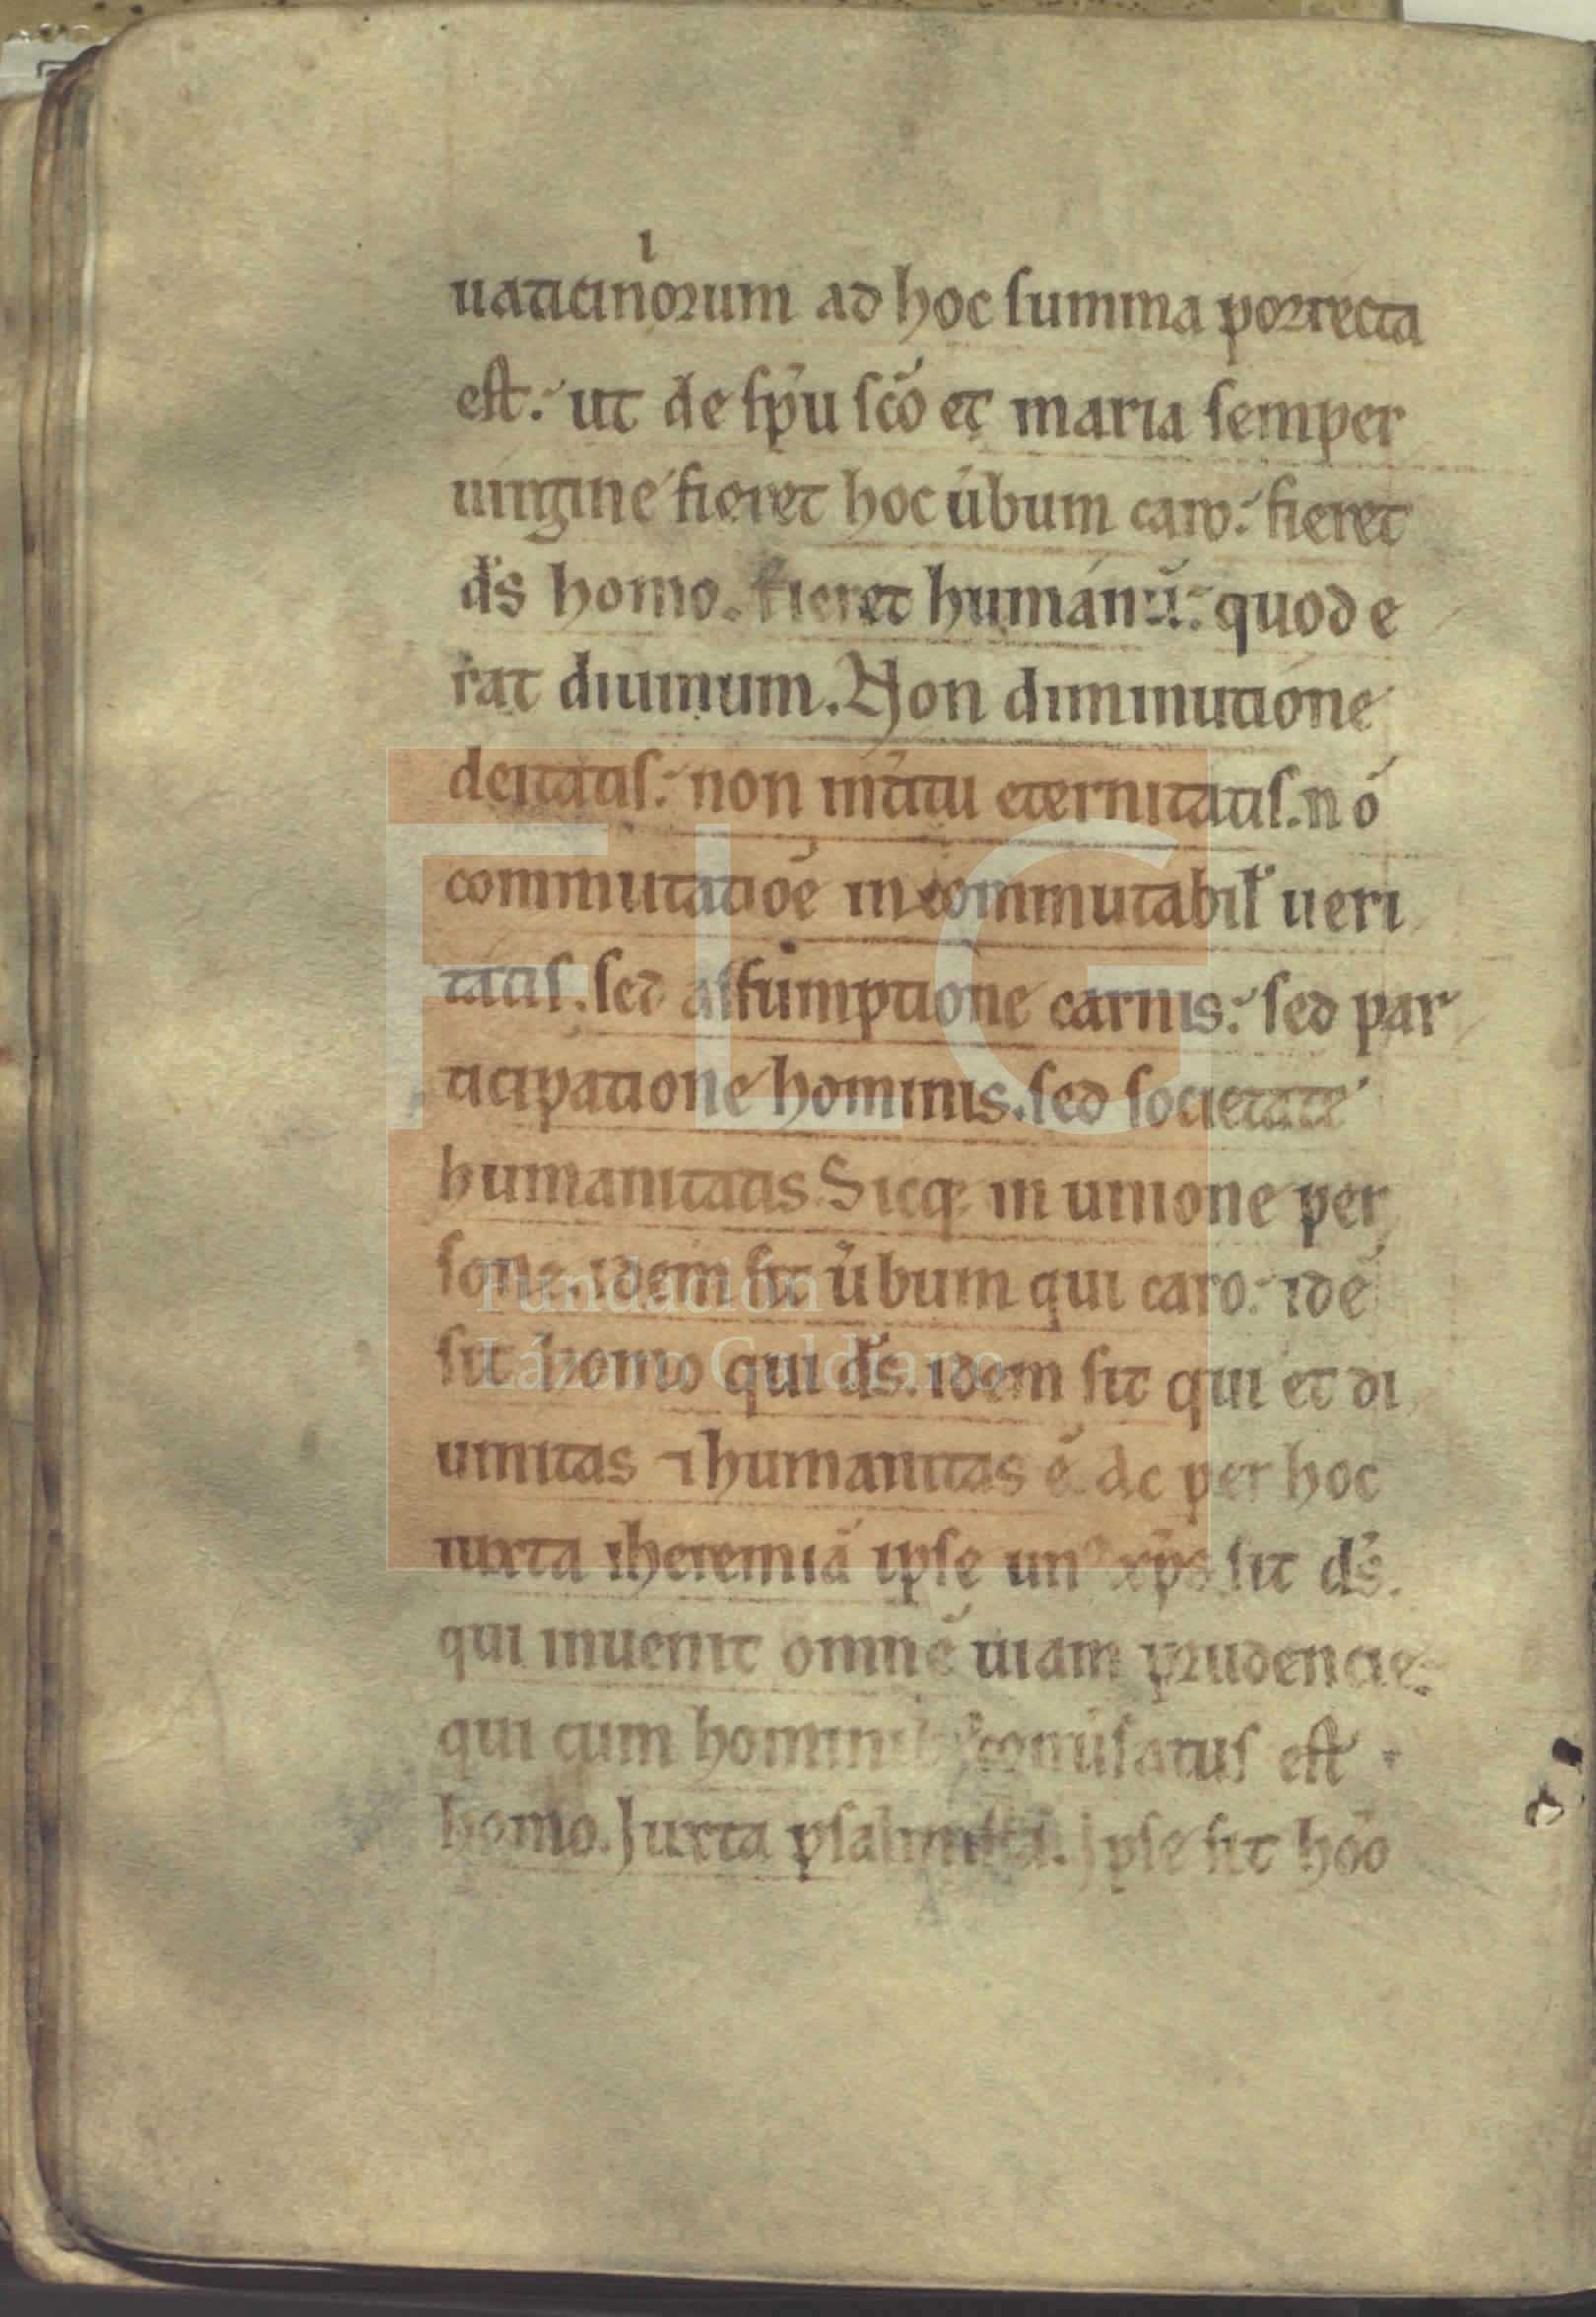 uaticinorum ad hoc summa porrecta
est. ut de sp̄u sc̄o et maria semper
uirgine fieret hoc u̅bum caro. fieret
d̄s homo. fieret humanū. quod e
rat diuinum. Non diminutione
deitatis. non
eternitatis. nō
commutatiōe incommutabil̄ ueri
tatis. sed assumptione carnis. sed par
ticipatione hominis. sed societate
humanitatis. Sicq; in unione per
sone. idem sit u̅bum qui caro. idē
sit homo qui d̄s. idem sit qui et di
uinitas ⁊ humanitas ē. ac per hoc
iuxta iheremiā ipse unꝰ xp̄s sit d̄s.
qui inuenit omnē uiam prudencie.
qui cum
est
homo. Iuxta
Ipse sit hōo
FLG
Fundación
Lázaro Galdiano